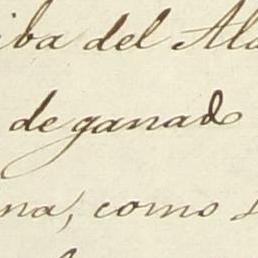 iba del Ala
de ganado
na, como